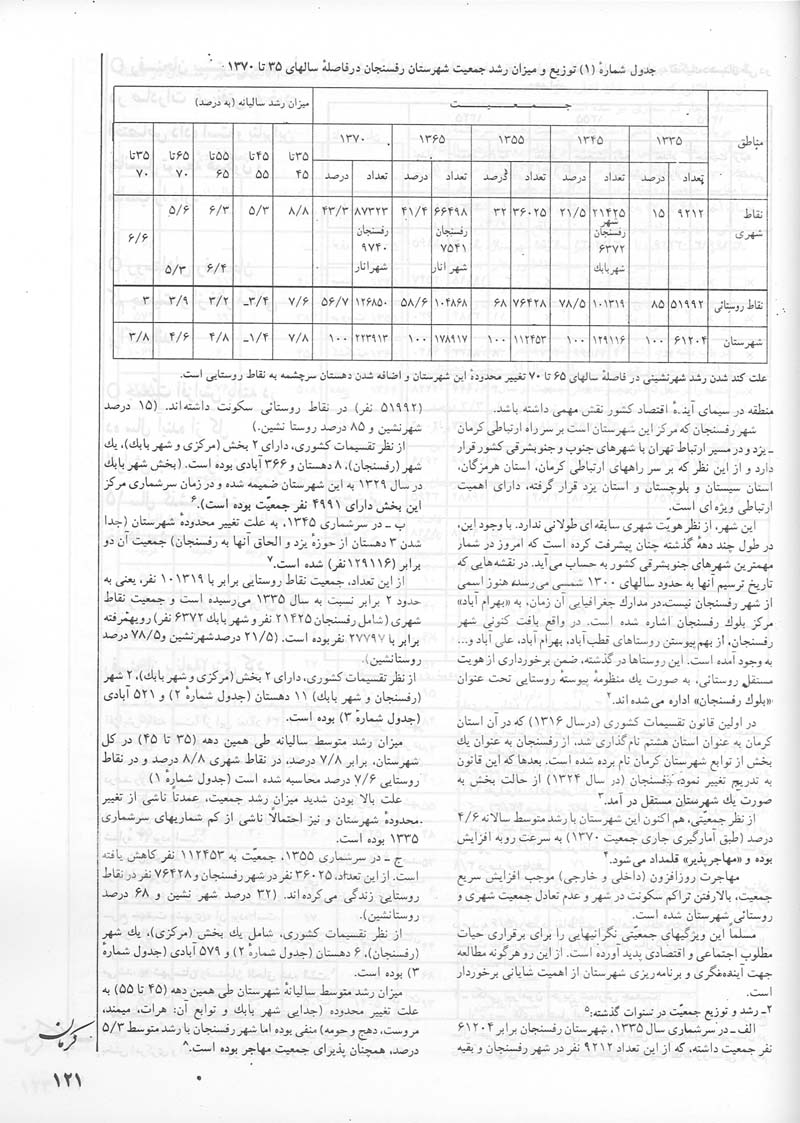 جدول شمارهٔ (۱) توزیع و میزان رشد جمعیت شهرستان رفسنجان درفاصلهٔ سالهای ۳۵ تا ۱۳۷۰
مناطق جمعیت میزان رشد سالیانه (به درصد)
۱۳۳۵ ۱۳۴۵ ۱۳۵۵ ۱۳۶۵ ۱۳۷۰ ۳۵تا ۴۵ ۴۵تا ۵۵ ۵۵تا ۶۵ ۶۵تا ۷۰ ۳۵تا ۷۰
تعداد درصد تعداد درصد تعداد درصد تعداد درصد تعداد درصد
نقاط شهری ۹۲۱۲ ۱۵ ۲۱۴۲۵ شهر رفسنجان ۶۳۷۲ شهربابك ۲۱/۵ ۳۶۰۲۵ ۳۲ ۶۶۴۹۸ رفسنجان ۷۵۴۱ شهر انار ۴۱/۴ ۸۷۳۲۳ رفسنجان ۹۷۴۰ شهرانار ۴۳/۳ ۸/۸ ۵/۳ ۶/۳ ۶/۴ ۵/۶ ۵/۳ ۶/۶
نقاط روستائی ۵۱۹۹۲ ۸۵ ۱۰۱۳۱۹ ۷۸/۵ ۷۶۴۲۸ ۶۸ ۱۰۴۸۶۸ ۵۸/۶ ۱۲۶۸۵۰ ۵۶/۷ ۷/۶ ۳/۴- ۳/۲ ۳/۹ ۳
شهرستان ۶۱۲۰۴ ۱۰۰ ۱۲۹۱۱۶ ۱۰۰ ۱۱۲۴۵۳ ۱۰۰ ۱۷۸۹۱۷ ۱۰۰ ۲۲۳۹۱۳ ۱۰۰ ۷/۸ ۱/۴- ۴/۸ ۴/۶ ۳/۸
علت کند شدن رشد شهرنشینی در فاصلهٔ سالهای ۶۵ تا ۷۰ تغییر محدودهٔ این شهرستان و اضافه شدن دهستان سرچشمه به نقاط روستایی است.
منطقه در سیمای آیندهٔ اقتصاد کشور نقش مهمی داشته باشد.
شهر رفسنجان که مرکز این شهرستان است بر سر راه ارتباطی کرمان
ـ یزد و در مسیر ارتباط تهران با شهرهای جنوب و جنوبشرقی کشور قرار
دارد و از این نظر که بر سر راههای ارتباطی کرمان، استان هرمزگان،
استان سیستان و بلوچستان و استان یزد قرار گرفته، دارای اهمیت
ارتباطی ویژه‌ای است.
این شهر، از نظر هویّت شهری سابقه‌ای طولانی ندارد. با وجود این،
در طول چند دههٔ گذشته چنان پیشرفت کرده است که امروز در شمار
مهمترین شهرهای جنوبشرقی کشور به حساب می‌آید. در نقشه‌هایی که
تاریخ ترسیم آنها به حدود سالهای ۱۳۰۰ شمسی می‌رسد، هنوز اسمی
از شهر رفسنجان نیست. در مدارك جغرافیایی آن زمان، به «بهرام آباد»
مرکز بلوك رفسنجان اشاره شده است. در واقع بافت کنونی شهر
رفسنجان، از بهم پیوستن روستاهای قطب‌آباد، بهرام آباد، علی آباد و...
به وجود آمده است. این روستاها در گذشته، ضمن برخورداری از هویت
مستقل روستائی، به صورت یك منظومهٔ پیوستهٔ روستایی تحت عنوان
«بلوك رفسنجان» اداره می‌شده اند.۲
در اولین قانون تقسیمات کشوری (درسال ۱۳۱۶) که در آن استان
کرمان به عنوان استان هشتم نام‌گذاری شد، از رفسنجان به عنوان یك
بخش از توابع شهرستان کرمان نام برده شده است. بعدها که این قانون
به تدریج تغییر نمود، رفسنجان (در سال ۱۳۲۴) از حالت بخش به
صورت یك شهرستان مستقل در آمد.۳
از نظر جمعیّتی، هم اکنون این شهرستان با رشد متوسط سالانه ۴/۶
درصد (طبق آمارگیری جاری جمعیت ۱۳۷۰) به سرعت رو به افزایش
بوده و «مهاجرپذیر» قلمداد می‌شود.۴
مهاجرت روزافزون (داخلی و خارجی) موجب افزایش سریع
جمعیت، بالارفتن تراکم سکونت در شهر و عدم تعادل جمعیت شهری و
روستائی شهرستان شده است.
مسلماً این ویژگیهای جمعیّتی نگرانیهایی را برای برقراری حیات
مطلوب اجتماعی و اقتصادی پدید آورده است. از این رو هرگونه مطالعه
جهت آینده‌نگری و برنامه‌ریزی شهرستان از اهمیت شایانی برخوردار
است.
۲ـ رشد و توزیع جمعیّت در سنوات گذشته:۵
الف ـ در سرشماری سال ۱۳۳۵، شهرستان رفسنجان برابر ۶۱۲۰۴
نفر جمعیت داشته، که از این تعداد ۹۲۱۲ نفر در شهر رفسنجان و بقیه
(۵۱۹۹۲ نفر) در نقاط روستائی سکونت داشته‌اند. (۱۵ درصد
شهرنشین و ۸۵ درصد روستا نشین.)
از نظر تقسیمات کشوری، دارای ۲ بخش (مرکزی و شهر بابك)، یك
شهر (رفسنجان)، ۸ دهستان و ۳۶۶ آبادی بوده است. (بخش شهر بابك
در سال ۱۳۲۹ به این شهرستان ضمیمه شده و در زمان سرشماری مرکز
این بخش دارای ۴۹۹۱ نفر جمعیّت بوده است).۶
ب ـ در سرشماری ۱۳۴۵، به علت تغییر محدودهٔ شهرستان (جدا
شدن ۳ دهستان از حوزهٔ یزد و الحاق آنها به رفسنجان) جمعیت آن دو
برابر (۱۲۹۱۱۶نفر) شده است.۷
از این تعداد، جمعیت نقاط روستایی برابر با ۱۰۱۳۱۹ نفر، یعنی به
حدود ۲ برابر نسبت به سال ۱۳۳۵ می‌رسیده است و جمعیت نقاط
شهری (شامل رفسنجان ۲۱۴۲۵ نفر و شهر بابك ۶۳۷۲ نفر) رویهمرفته
برابر با ۲۷۷۹۷ نفر بوده است. (۲۱/۵ درصد شهر نشین و ۷۸/۵ درصد
روستانشین).
از نظر تقسیمات کشوری، دارای ۲ بخش (مرکزی و شهر بابك)، ۲ شهر
(رفسنجان و شهر بابك) ۱۱ دهستان (جدول شمارهٔ ۲) و ۵۲۱ آبادی
(جدول شمارهٔ ۳) بوده است.
میزان رشد متوسط سالیانه طی همین دهه (۳۵ تا ۴۵) در کل
شهرستان، برابر ۷/۸ درصد، در نقاط شهری ۸/۸ درصد و در نقاط
روستایی ۷/۶ درصد محاسبه شده است (جدول شمارهٔ ۱)
علت بالا بودن شدید میزان رشد جمعیت، عمدتاً ناشی از تغییر
محدودهٔ شهرستان و نیز احتمالاً ناشی از کم شماریهای سرشماری
۱۳۳۵ بوده است.
ج ـ در سرشماری ۱۳۵۵، جمعیت به ۱۱۲۴۵۳ نفر کاهش یافته
است. از این تعداد، ۳۶۰۲۵ نفر در شهر رفسنجان و ۷۶۴۲۸ نفر در نقاط
روستایی زندگی می‌کرده‌اند. (۳۲ درصد شهر نشین و ۶۸ درصد
روستانشین).
از نظر تقسیمات کشوری، شامل یك بخش (مرکزی)، یك شهر
(رفسنجان)، ۶ دهستان (جدول شمارهٔ ۲) و ۵۷۹ آبادی (جدول شمارهٔ
۳) بوده است.
میزان رشد متوسط سالیانهٔ شهرستان طی همین دهه (۴۵ تا ۵۵) به
علت تغییر محدوده (جدایی شهر بابك و توابع آن: هرات، میمند،
مروست، دهج و حومه) منفی بوده اما شهر رفسنجان با رشد متوسط ۵/۳
درصد، همچنان پذیرای جمعیت مهاجر بوده است.۸
کرمان
۱۲۱